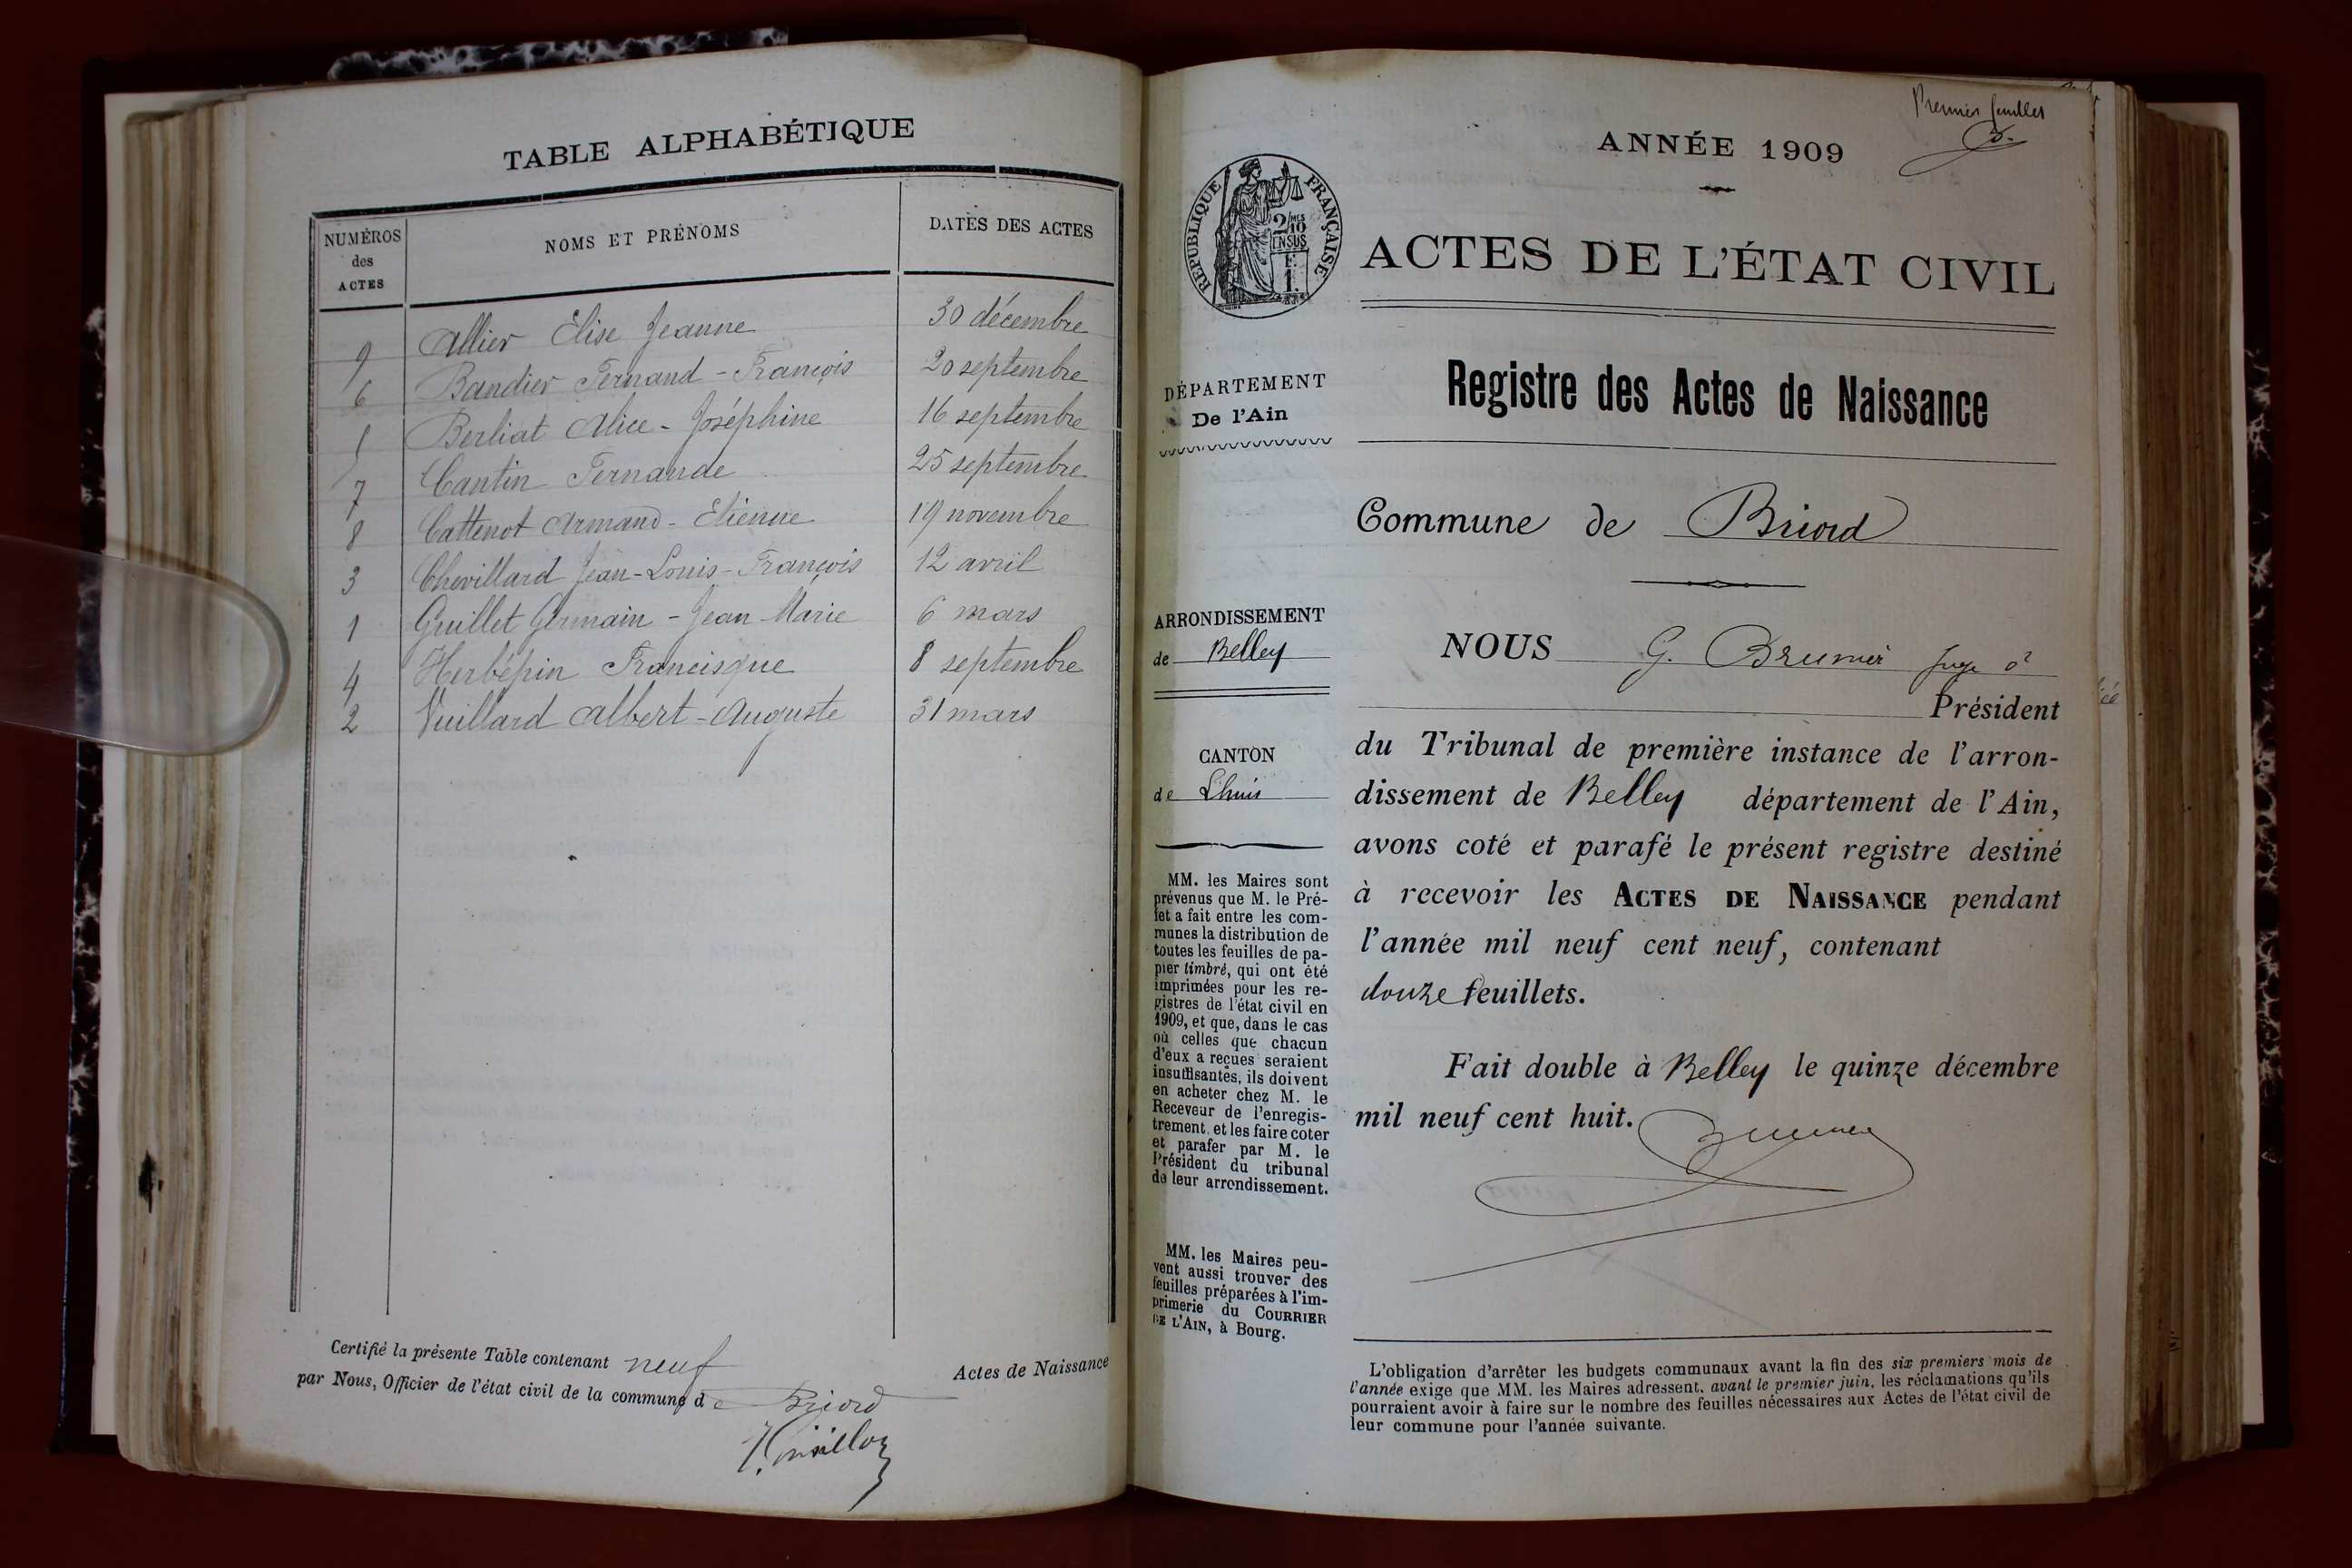 TABLE ALPHABÉTIQUE
NUMÉROS des ACTES
NOMS ET PRÉNOMS
DATES DES ACTES
9 Allier Elise Jeanne 30 décembre
6 Bandier Fernand - François 20 septembre
Berliat Alice - Joséphine 16 septembre
7 Cantin Fernande 25 septembre
8 Cattenot Armand - Etienne 19 novembre
3 Chevillard Jean-Louis-François 12 avril
1 Guillet Germain - Jean Marie 6 mars
4 Herbépin Francisque 8 septembre
2 Vuillard Albert-Auguste 31 mars
Certifié la présente Table contenant neuf Actes de Naissance
par Nous, Officier de l'état civil de la commune de Briord
Premier feuillet
ANNÉE 1909
RÉPUBLIQUE FRANÇAISE
2/10 MES
EN SUS
1 F.
ACTES DE L'ÉTAT CIVIL
DÉPARTEMENT
De l'Ain
Registre des Actes de Naissance
Commune de Briord
ARRONDISSEMENT
de Belley
CANTON
de Lhuis
MM. les Maires sont
prévenus que M. le Pré-
fet a fait entre les com-
munes la distribution de
toutes les feuilles de pa-
pier timbré, qui ont été
imprimées pour les re-
gistres de l'état civil en
1909, et que, dans le cas
où celles que chacun
d'eux a reçues seraient
insuffisantes, ils doivent
en acheter chez M. le
Receveur de l'enregis-
trement, et les faire coter
et parafer par M. le
Président du tribunal
de leur arrondissement.
MM. les Maires peu-
vent aussi trouver des
feuilles préparées à l'im-
primerie du COURRIER
DE L'AIN, à Bourg.
NOUS G. Brunier juge
Président
du Tribunal de première instance de l'arron-
dissement de Belley département de l'Ain,
avons coté et parafé le présent registre destiné
à recevoir les ACTES DE NAISSANCE pendant
l'année mil neuf cent neuf, contenant
douze feuillets.
Fait double à Belley le quinze décembre
mil neuf cent huit.
L'obligation d'arrêter les budgets communaux avant la fin des six premiers mois de
l'année exige que MM. les Maires adressent, avant le premier juin, les réclamations qu'ils
pourraient avoir à faire sur le nombre des feuilles nécessaires aux Actes de l'état civil de
leur commune pour l'année suivante.